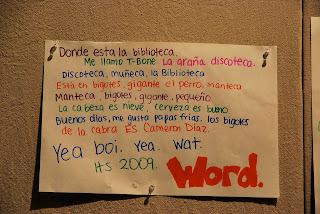 Donde esta la biblioteca.
Me llamo T-Bone La araña discoteca.
Discoteca, muñeca, la Biblioteca
Está en bigotes, gigante el perro, manteca
Manteca, bigotes, gigante, pequeño
La cabeza es nieve, cerveza es bueno
Buenos días, me gusta papas frías. los bigotes
de la cabra Es Cameron Diaz.
Yea boi. Yea. wat.
Its 2009. Word.